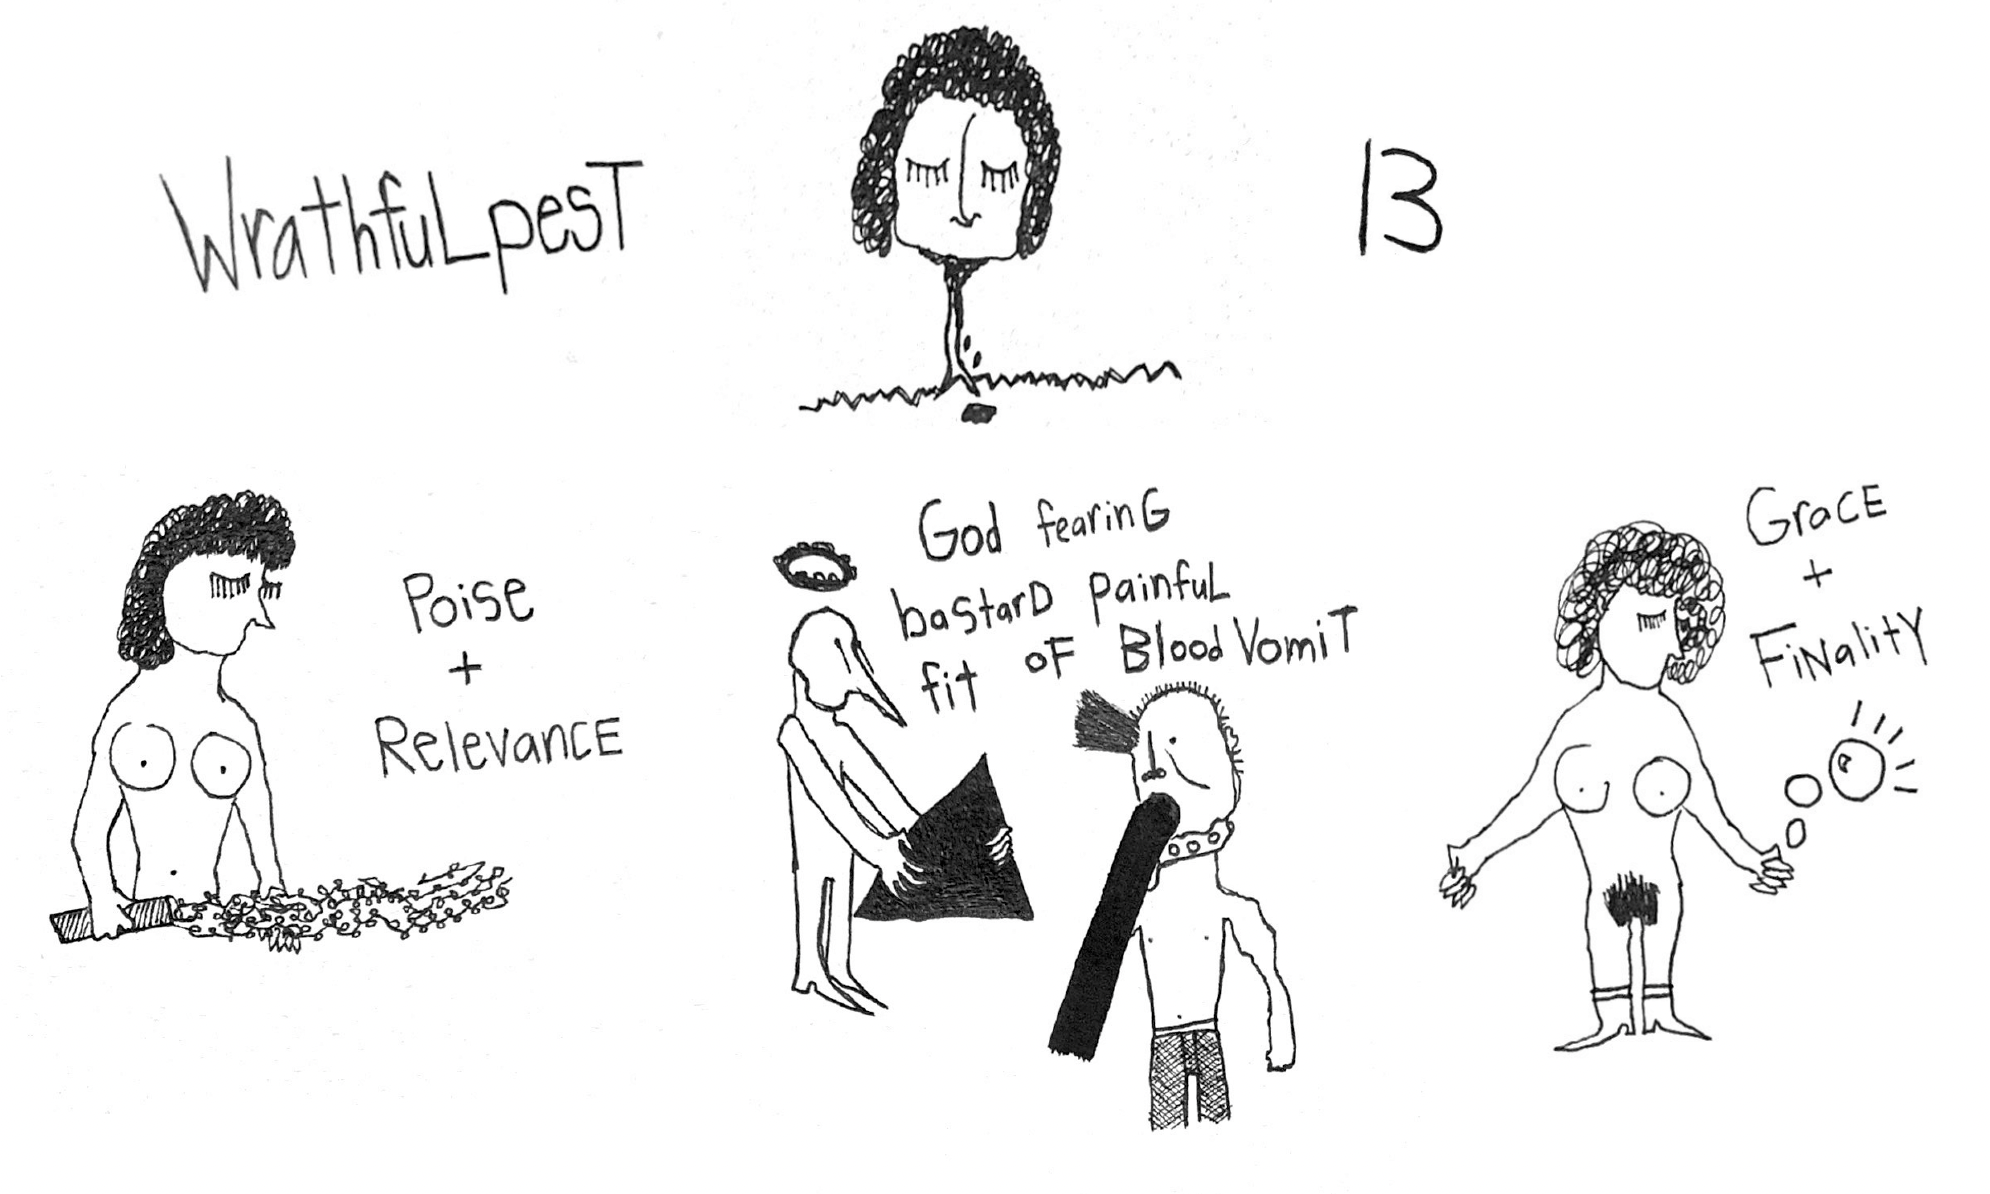 WrathfuLpesT
13
Poise
+
RelevancE
God fearinG
bastarD PainfuL
fit oF Blood VomiT
GracE
+
FiNalitY